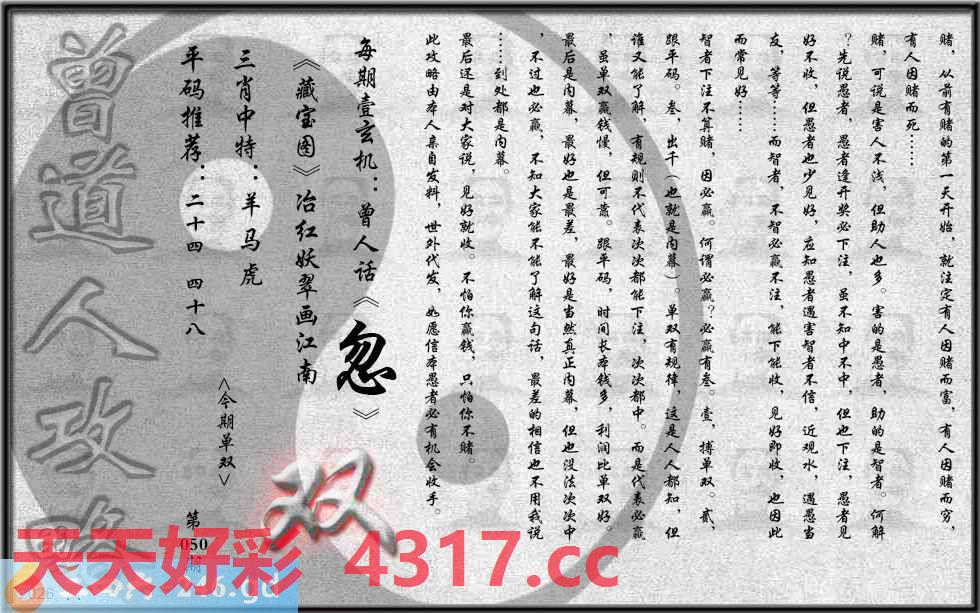 赌，从前有赌的第一天开始，就注定有人因赌而富，有人因赌而穷，
有人因赌而死……
赌，可说是害人不浅，但助人也多。害的是愚者，助的是智者。何解
？先说愚者，愚者逢开奖必下注，虽不知中不中，但也下注，愚者见
好不收，但愚者也少见好，应知愚者遇害智者不信，近观水，遇愚当
友，等等……而智者，不智必赢不注，能下能收，见好即收，也因此
而常见好……
智者下注不算赌，因必赢。何谓必赢？必赢有叁。壹，搏单双。贰，
跟平码。叁，出千（也就是内幕）。单双有规律，这是人人都知，但
谁又能了解，有规则不代表次次都能下注，次次都中。而是代表必赢
，虽单双赢钱慢，但可靠。跟平码，时间长本钱多，利润比单双好。
最后是内幕，最好也是最差，最好是当然真正内幕，但也没法次次中
，不过也必赢，不知大家能不能了解这句话，最差的相信也不用我说
……到处都是内幕。
最后还是对大家说，见好就收。不怕你赢钱，只怕你不赌。
此攻略由本人亲自发料，世外代发，如愿信本愚者必有机会收手。
每期壹玄机：曾人话《忽》
《藏宝图》冶红妖翠画江南
三肖中特：羊马虎
平码推荐：二十四 四十八
<今期单双>
双
第
050
期
曾道人攻略
天天好彩 4317.cc